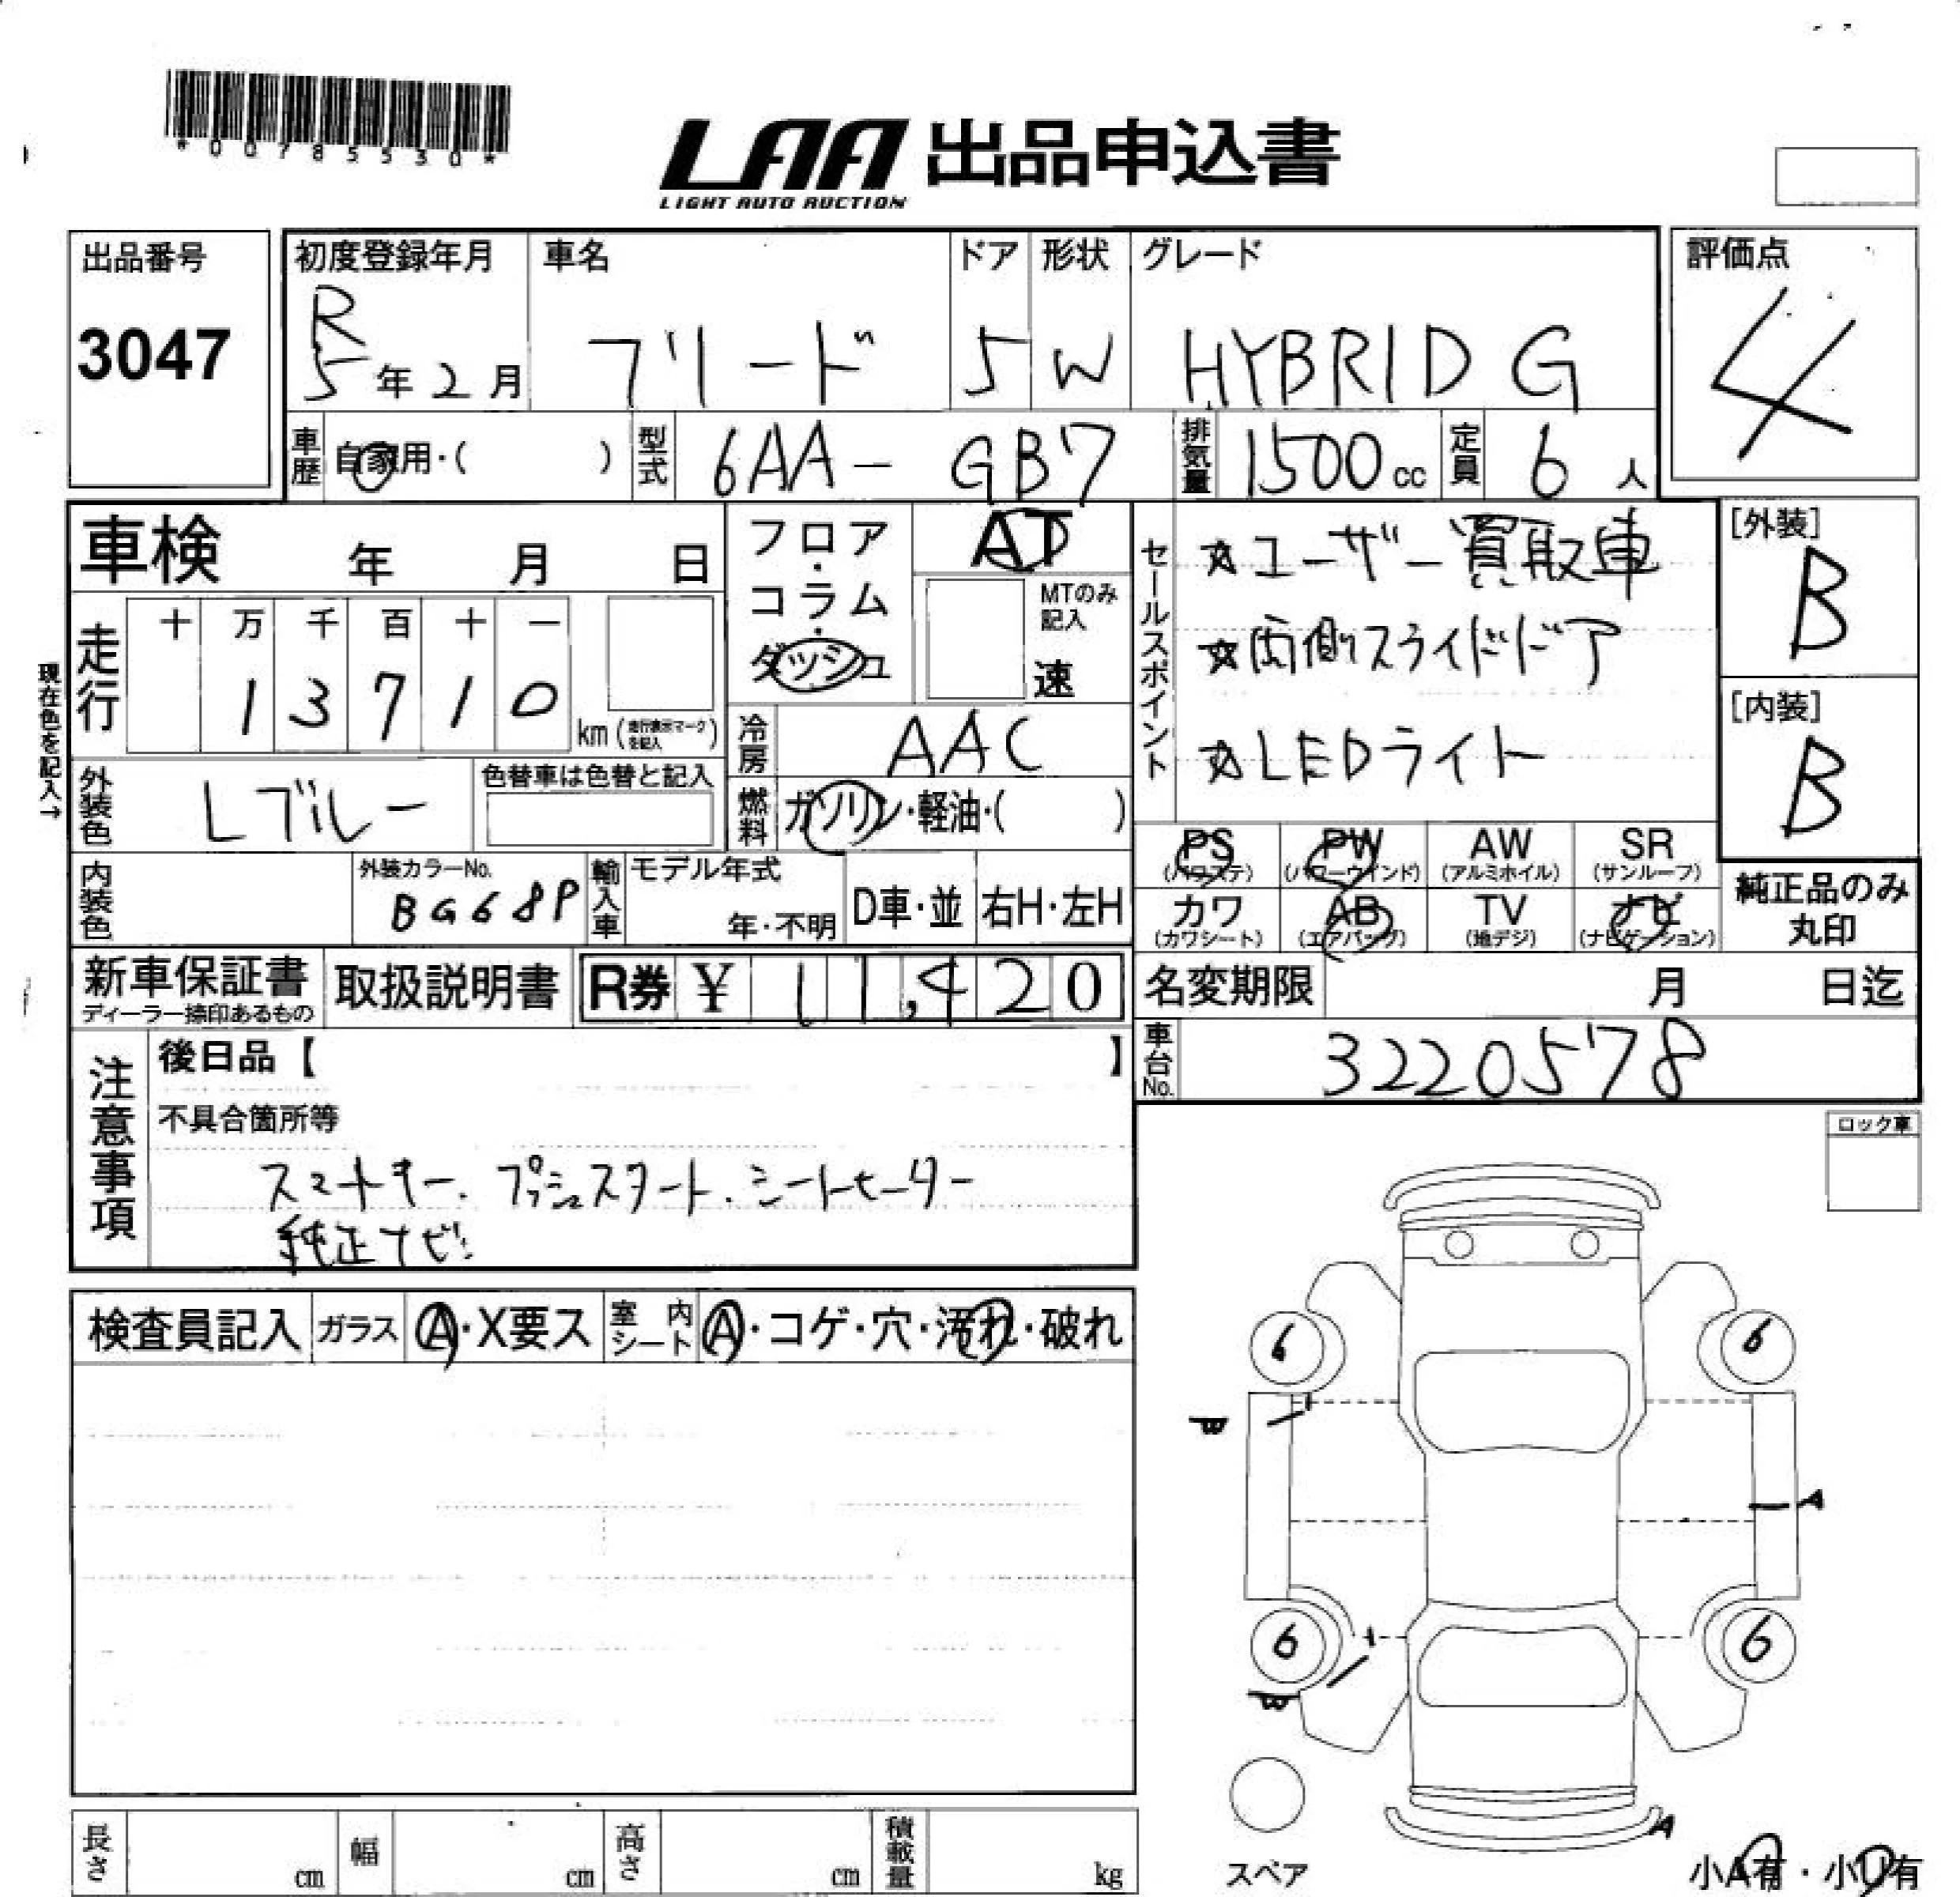 *00785530*
LAA 出品申込書
LIGHT AUTO AUCTION
出品番号
3047
初度登録年月
R
5年2月
車名
フリード
ドア
5
形状
W
グレード
HYBRID G
評価点
4
車歴
自家用・( )
型式
6AA-GB7
排気量
1500cc
定員
6人
車検 年 月 日
現在色を記入→
走行
十 万 千 百 十 一
1 3 7 1 0
km(走行表示マークを記入)
フロア・コラム・ダッシュ
AT
MTのみ記入
速
冷房
AAC
燃料
ガソリン・軽油・( )
セールスポイント
☆ユーザー買取車
☆両側スライドドア
☆LEDライト
[外装]
B
[内装]
B
外装色
Lブルー
色替車は色替と記入
内装色
外装カラーNo.
BG68P
輸入車
モデル年式
年・不明
D車・並
右H・左H
PS (パワステ)
PW (パワーウインド)
AW (アルミホイル)
SR (サンルーフ)
カワ (カワシート)
AB (エアバッグ)
TV (地デジ)
ナビ (ナビゲーション)
純正品のみ
丸印
新車保証書
ディーラー捺印あるもの
取扱説明書
R券 ¥ 11,420
名変期限 月 日迄
車台No.
3220578
注意事項
後日品【 】
不具合箇所等
スマートキー、プッシュスタート、シートヒーター
純正ナビ
ロック車
検査員記入
ガラス
A・X要ス
室内シート
A・コゲ・穴・汚れ・破れ
6 6
W
A
6 6
W
A
スペア
小A有・小U有
長さ cm
幅 cm
高さ cm
積載量 kg